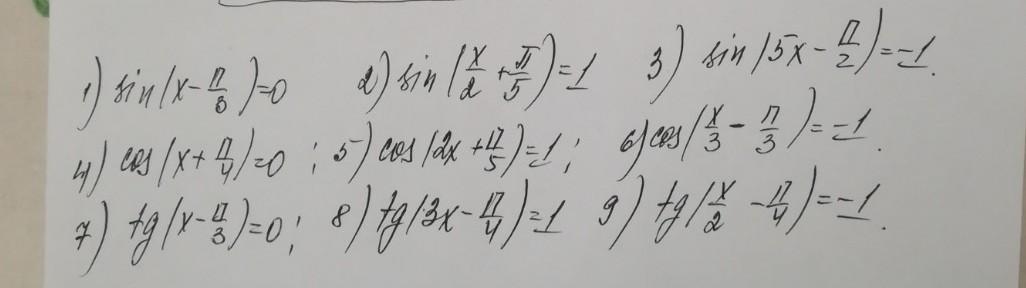 1) sin(x - π/3) = 0   2) sin(x/2 + π/5) = 1   3) sin(5x - π/2) = -1.
4) cos(x + π/4) = 0 ; 5) cos(2x + π/5) = 1 ; 6) cos(x/3 - π/3) = -1.
7) tg(x - π/3) = 0 ; 8) tg(3x - π/4) = 1   9) tg(x/2 - π/4) = -1.